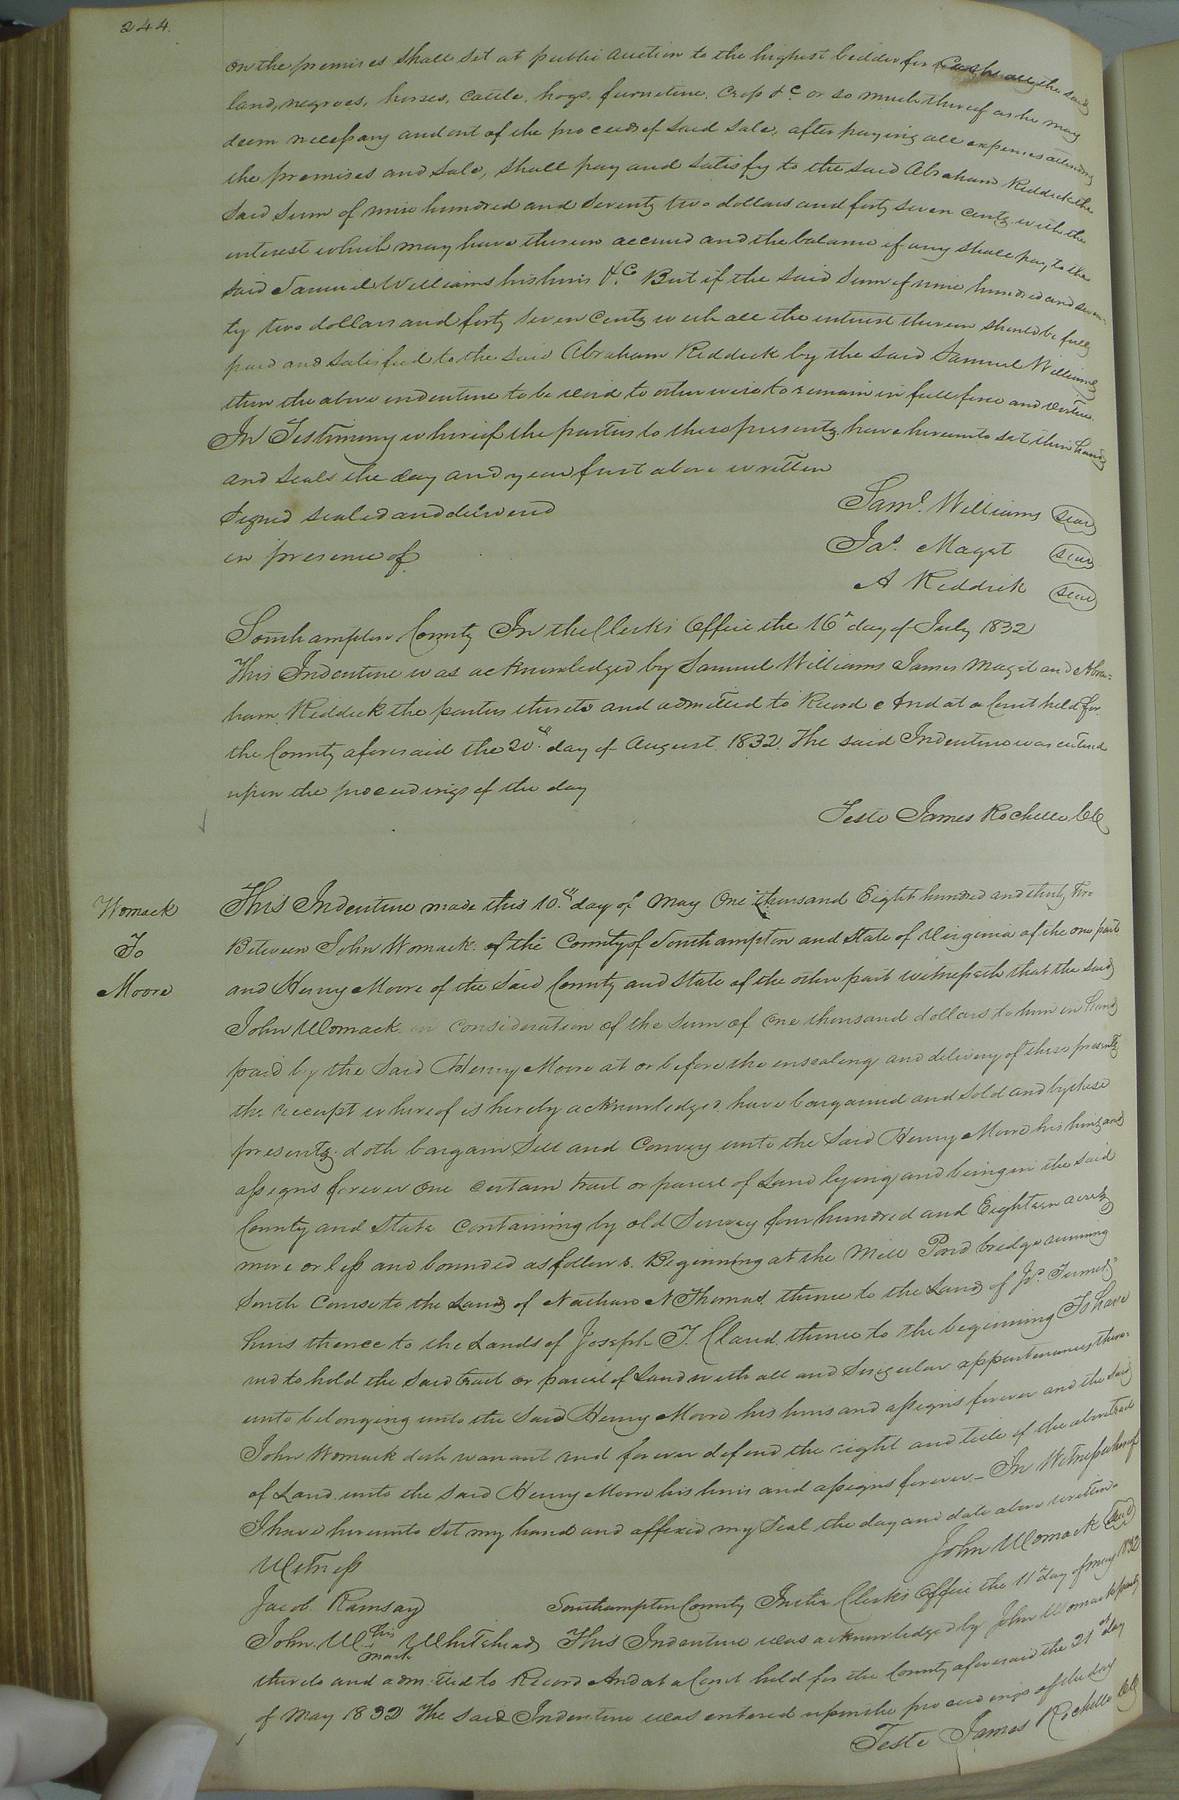 244.
on the premises shall set at public auction to the highest bidder for Cash all the said
land, negroes, horses, cattle, hogs, furniture, crop &c. or so much thereof as he may
deem necessary and out of the proceeds of said sale, after paying all expenses attending
the premises and sale, shall pay and satisfy to the said Abraham Riddick the
said sum of nine hundred and seventy two dollars and forty seven cents with the
interest which may have thereon accrued and the balance if any shall pay to the
said Samuel Williams his heirs &c. But if the said sum of nine hundred and seven-
ty two dollars and forty seven cents with all the interest thereon should be fully
paid and satisfied to the said Abraham Riddick by the said Samuel Williams
then the above indenture to be void to otherwise to remain in full force and virtue.
In Testimony whereof the parties to these presents have hereunto set their hands
and seals the day and year first above written
Signed sealed and delivered
in presence of
Saml. Williams (seal)
Jas. Maget (seal)
A Riddick (seal)
Southampton County In the Clerks Office the 16th day of July 1832
This Indenture was acknowledged by Samuel Williams James Maget and Abra=
ham Riddick the parties thereto and admitted to Record And at a Court held for
the County aforesaid the 20th day of August 1832. The said Indenture was entered
upon the proceedings of the day
Teste James Rochelle CC
Womack
To
Moore
This Indenture made this 10th day of May One thousand Eight hundred and thirty two
Between John Womack of the County of Southampton and State of Virginia of the one part
and Henry Moore of the said County and State of the other part witnesseth that the said
John Womack in consideration of the sum of One thousand dollars to him in hand
paid by the said Henry Moore at or before the ensealing and delivery of these presents
the receipt whereof is hereby acknowledged have bargained and sold and by these
presents doth bargain sell and convey unto the said Henry Moore his heirs and
assigns forever one certain tract or parcel of Land lying and being in the said
County and State containing by old survey four hundred and Eighteen acres
more or less and bounded as follows. Beginning at the Mill Pond bridge running
South course to the Land of Nathan N Thomas thence to the Land of Js. Turner's
heirs thence to the Lands of Joseph T. Claud thence to the beginning To have
and to hold the said tract or parcel of Land with all and singular appurtenances there-
unto belonging unto the said Henry Moore his heirs and assigns forever and the said
John Womack doth warrant and forever defend the right and title of the above tract
of Land unto the said Henry Moore his heirs and assigns forever – In Witness whereof
I have hereunto set my hand and affixed my Seal the day and date above written.
John Womack (seal)
Witness
Jacob Ramsay
John W his mark Whitehead
Southampton County In the Clerks Office the 11th day of May 1832
This Indenture was acknowledged by John Womack party
thereto and admitted to Record And at a Court held for the County aforesaid the 21st day
of May 1832 The said Indenture was entered upon the proceedings of the day
Teste James Rochelle CC